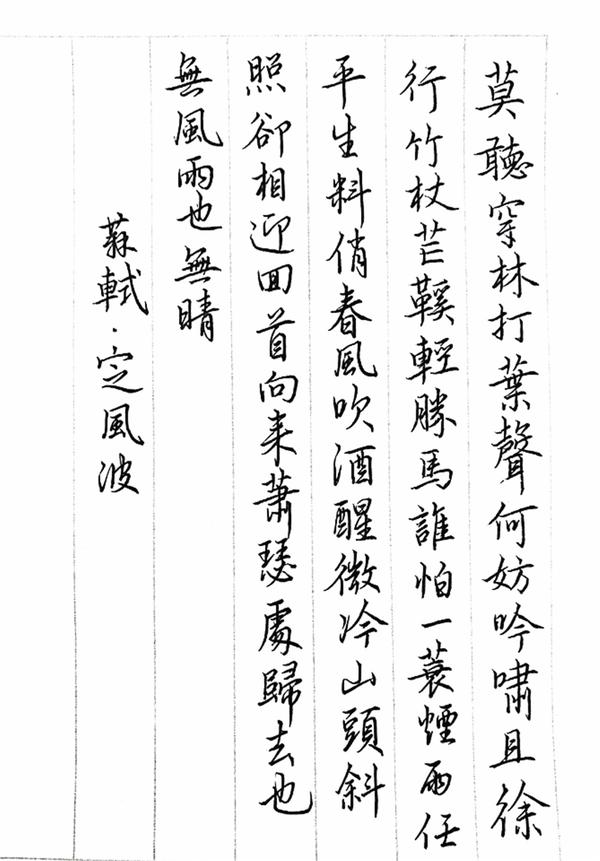 莫聽穿林打葉聲何妨吟嘯且徐
行竹杖芒鞵輕勝馬誰怕一蓑煙雨任
平生料俏春風吹酒醒微冷山頭斜
照卻相迎回首向来蕭瑟處歸去也
無風雨也無晴
蘇軾·定風波